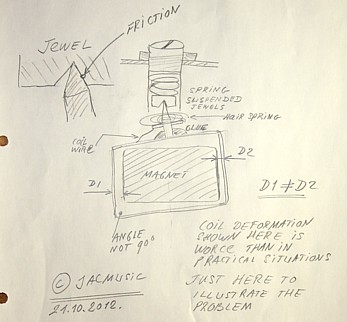 FRICTION
JEWEL
SPRING
SUSPENDED
JEWELS
HAIR SPRING
GLUE
COIL
WIRE
D2
D1
MAGNET
D1 ≠ D2
ANGLE
NOT 90°
COIL DEFORMATION
SHOWN HERE IS
WORCE THAN IN
PRACTICAL SITUATIONS
JUST HERE TO
ILLUSTRATE THE
PROBLEM
© JACMUSIC
21.10.2012.